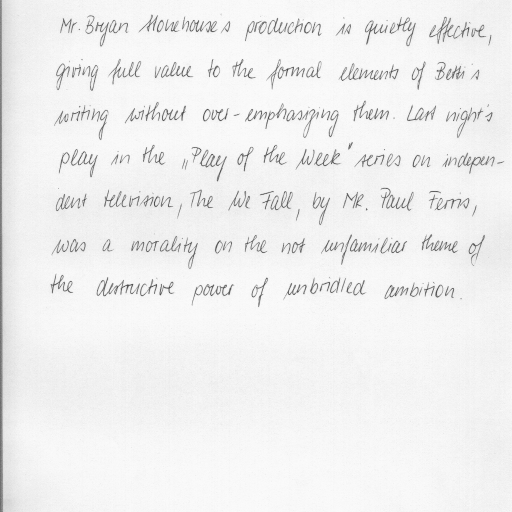 Mr. Bryan Stonehouse's production is quietly effective,
giving full value to the formal elements of Betti's
writing without over-emphasizing them. Last night's
play in the „Play of the Week" series on indepen-
dent television, The We Fall, by Mr. Paul Ferris,
was a morality on the not unfamiliar theme of
the destructive power of unbridled ambition.